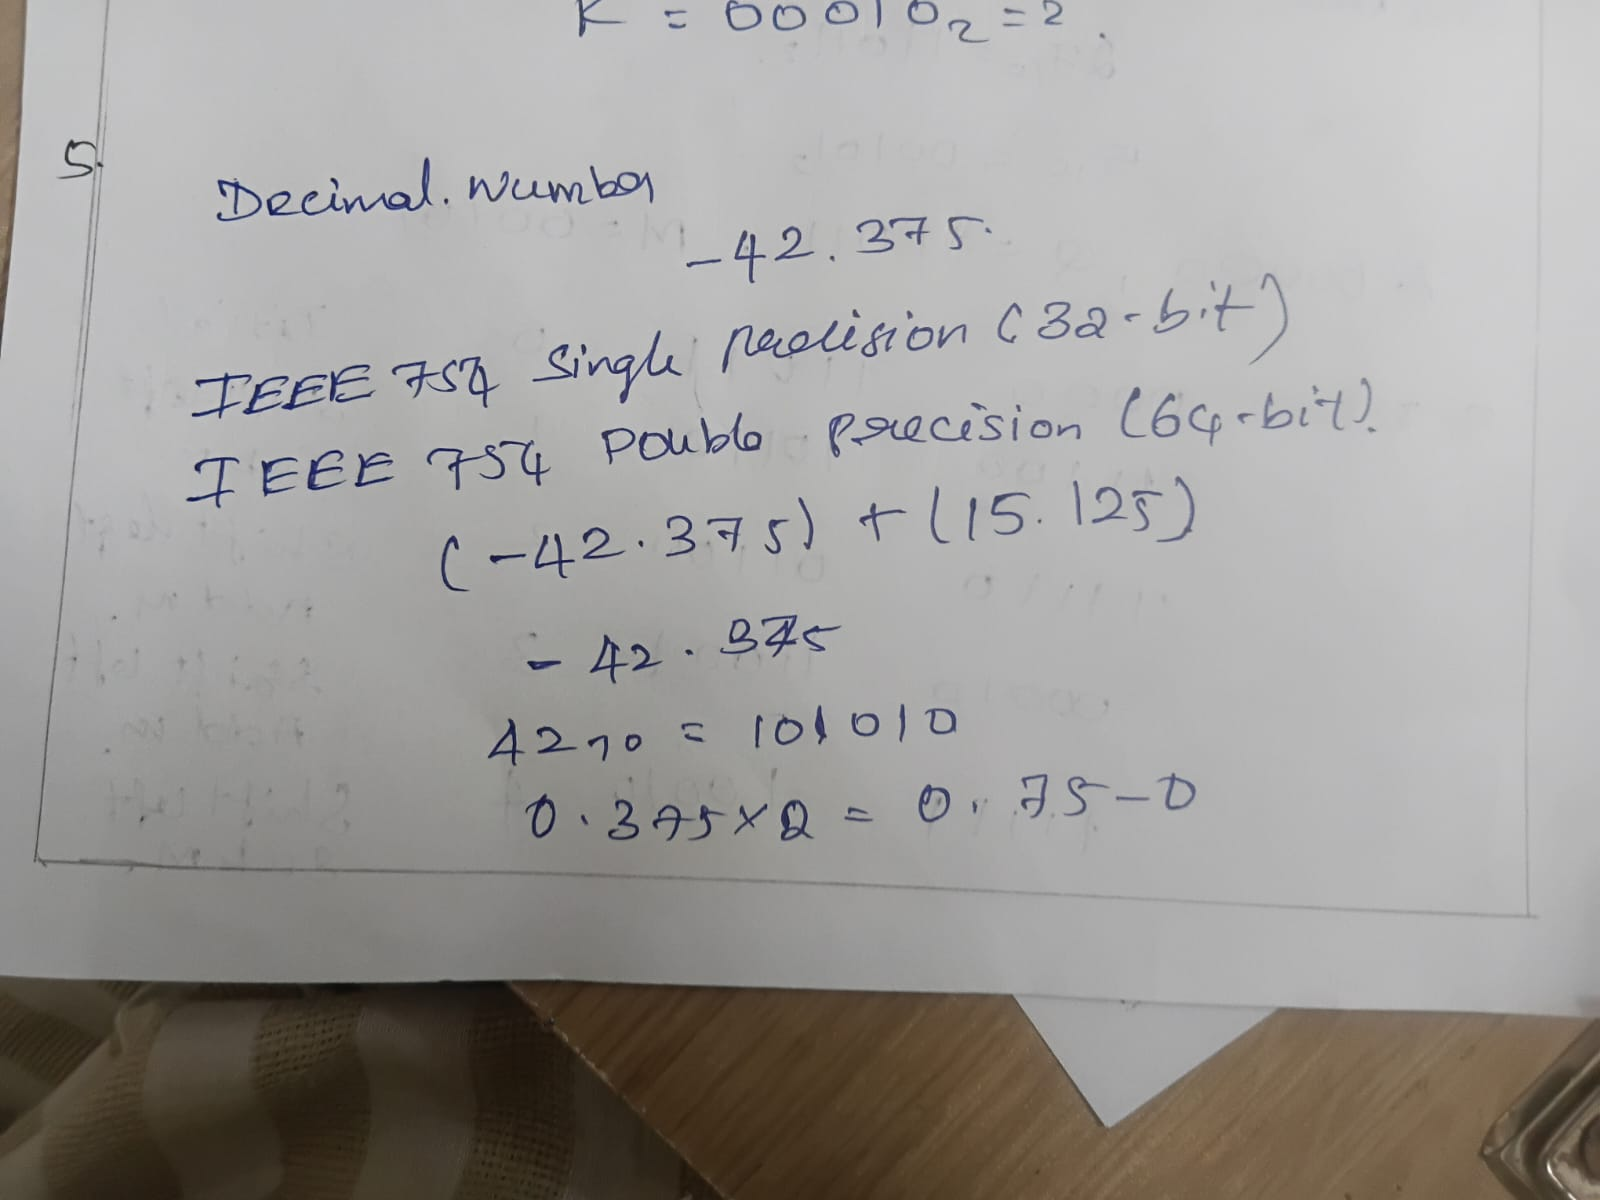 K = 00010₂ = 2.
5.
Decimal. Number
-42.375.
IEEE 754 Single precision (32-bit)
IEEE 754 Double precision (64-bit).
(-42.375) + (15.125)
- 42.375
42₁₀ = 101010
0.375 x 2 = 0.75 - 0